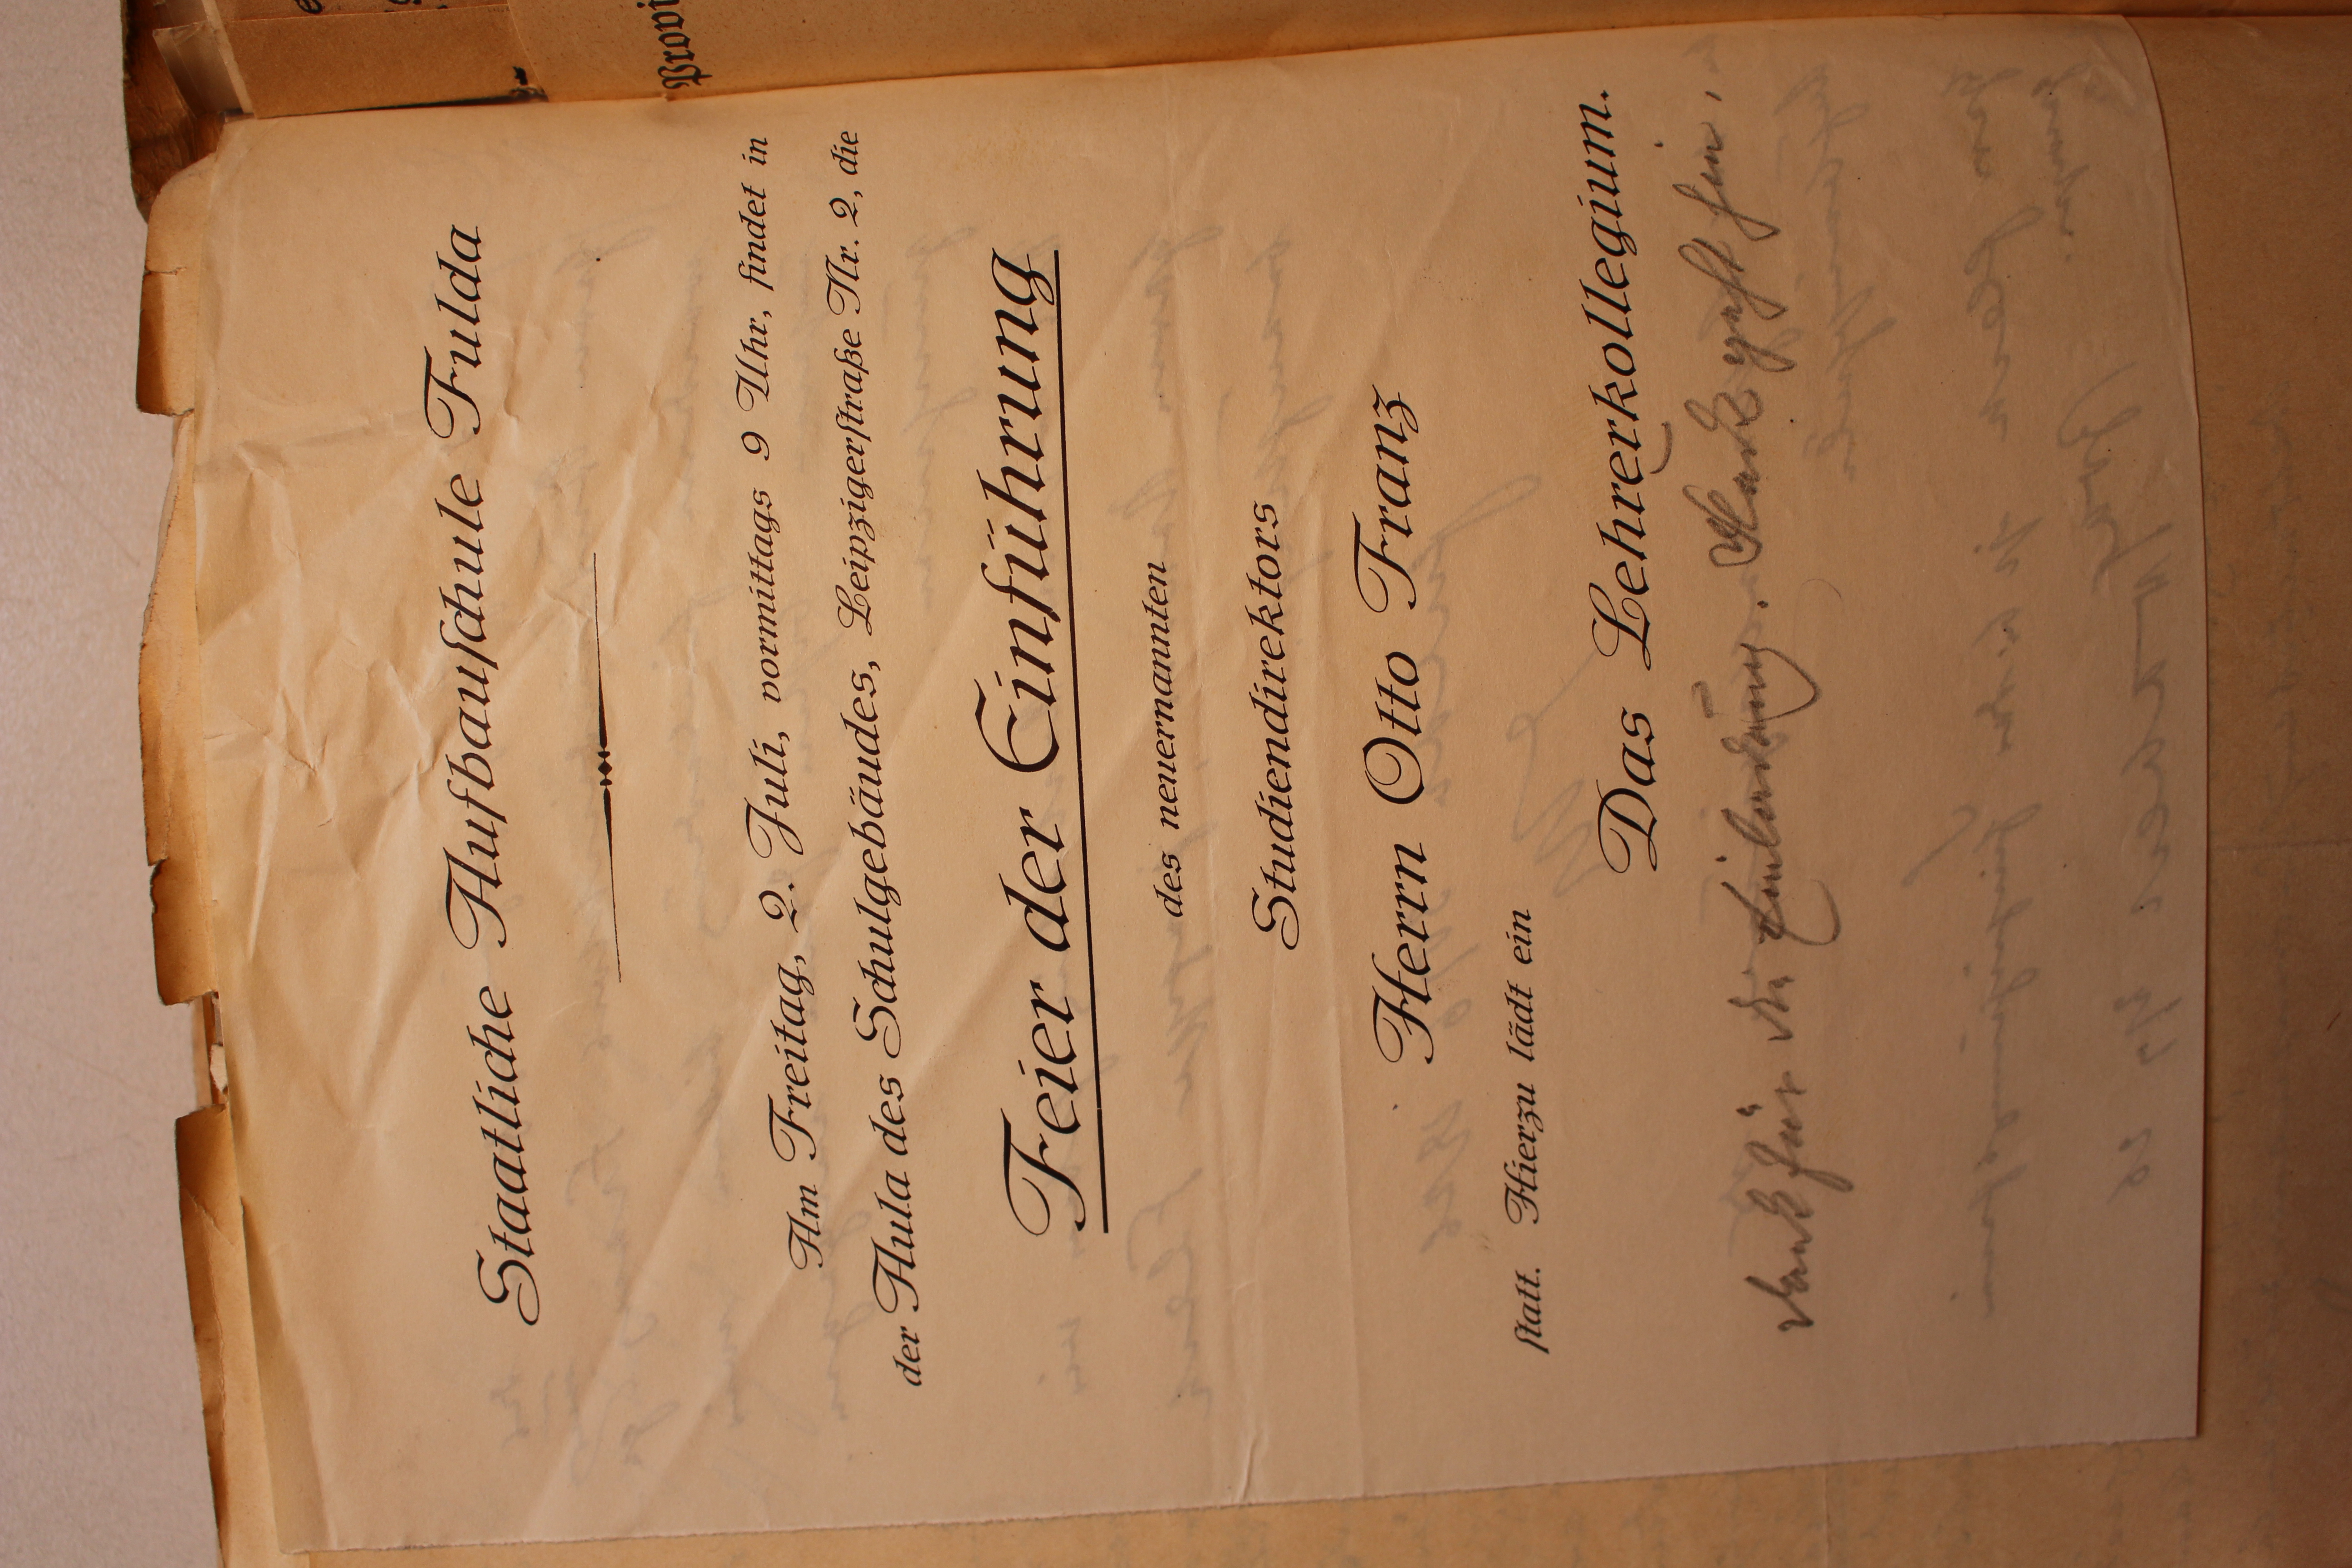 Staatliche Aufbauschule Fulda
Am Freitag, 2. Juli, vormittags 9 Uhr, findet in
der Aula des Schulgebäudes, Leipzigerstraße Nr. 2, die
Feier der Einführung
des neuernannten
Studiendirektors
Herrn Otto Franz
statt. Hierzu lädt ein
Das Lehrerkollegium.
Dank für die Einladung.
Provi